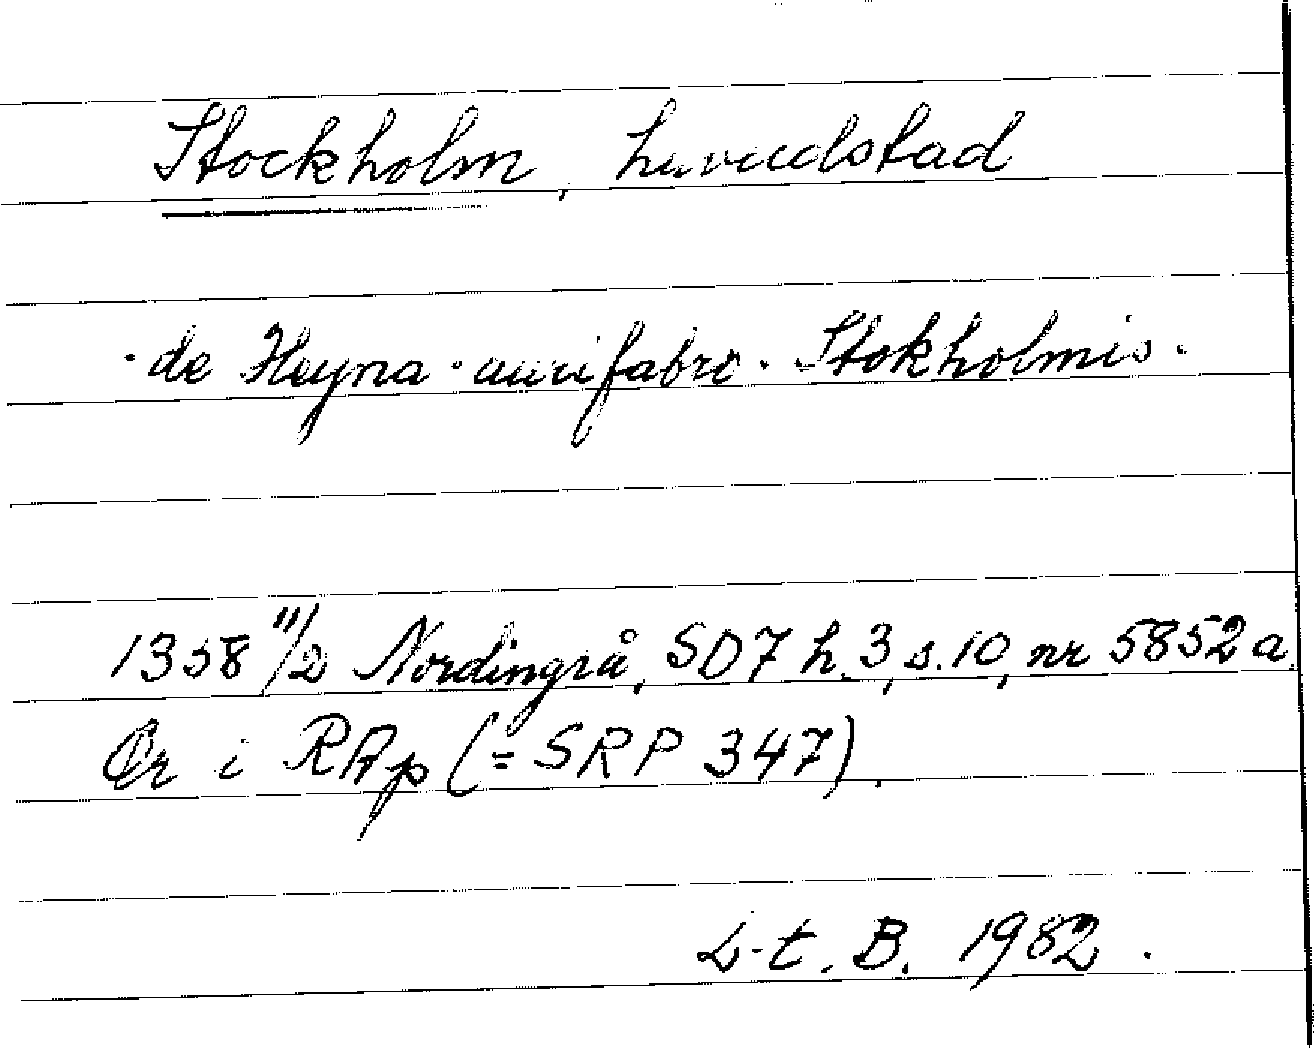 Stockholm, huvudstad
· de Heyna · aurifabro · Stokholmis ·
1358 11/2 Nordingrå, SD7 h. 3, s. 10, nr 5852 a.
Or i RAp (= SRP 347).
L-t. B. 1982.